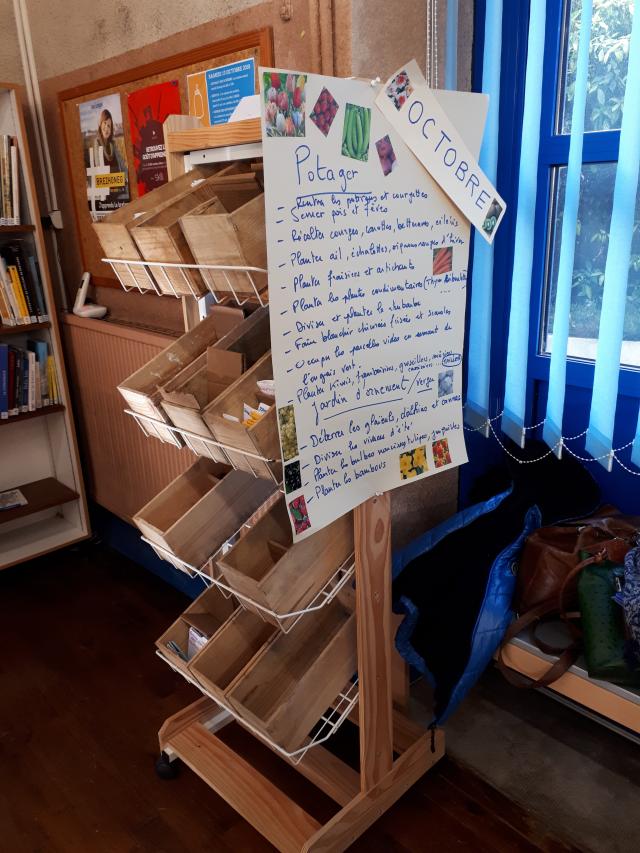 SAMEDI 12 OCTOBRE 2019
BREIZHONEG
J'apprends le breton
OCTOBRE
Potager
- Rentrer les potirons et courgettes
Semer pois et fèves
- Récolter courges, carottes, betteraves, céleris
- Planter ail, échalottes, oignons rouges d'hiver
- Planter fraisiers et artichauts
- Planter les plantes condimentaires (Thym
- Diviser et planter la rhubarbe
- Faire blanchir chicorées frisées et scaroles
- Occuper les parcelles vides en semant de
l'engrais vert
- Planter Kiwis, framboisiers, groseilles,
cassissiers
Jardin d'ornement / verger
- Déterrer les glaïeuls, dahlias et cannas
- Diviser les vivaces d'été
- Planter les bulbes narcisses, tulipes, jacinthes
- Planter les bambous